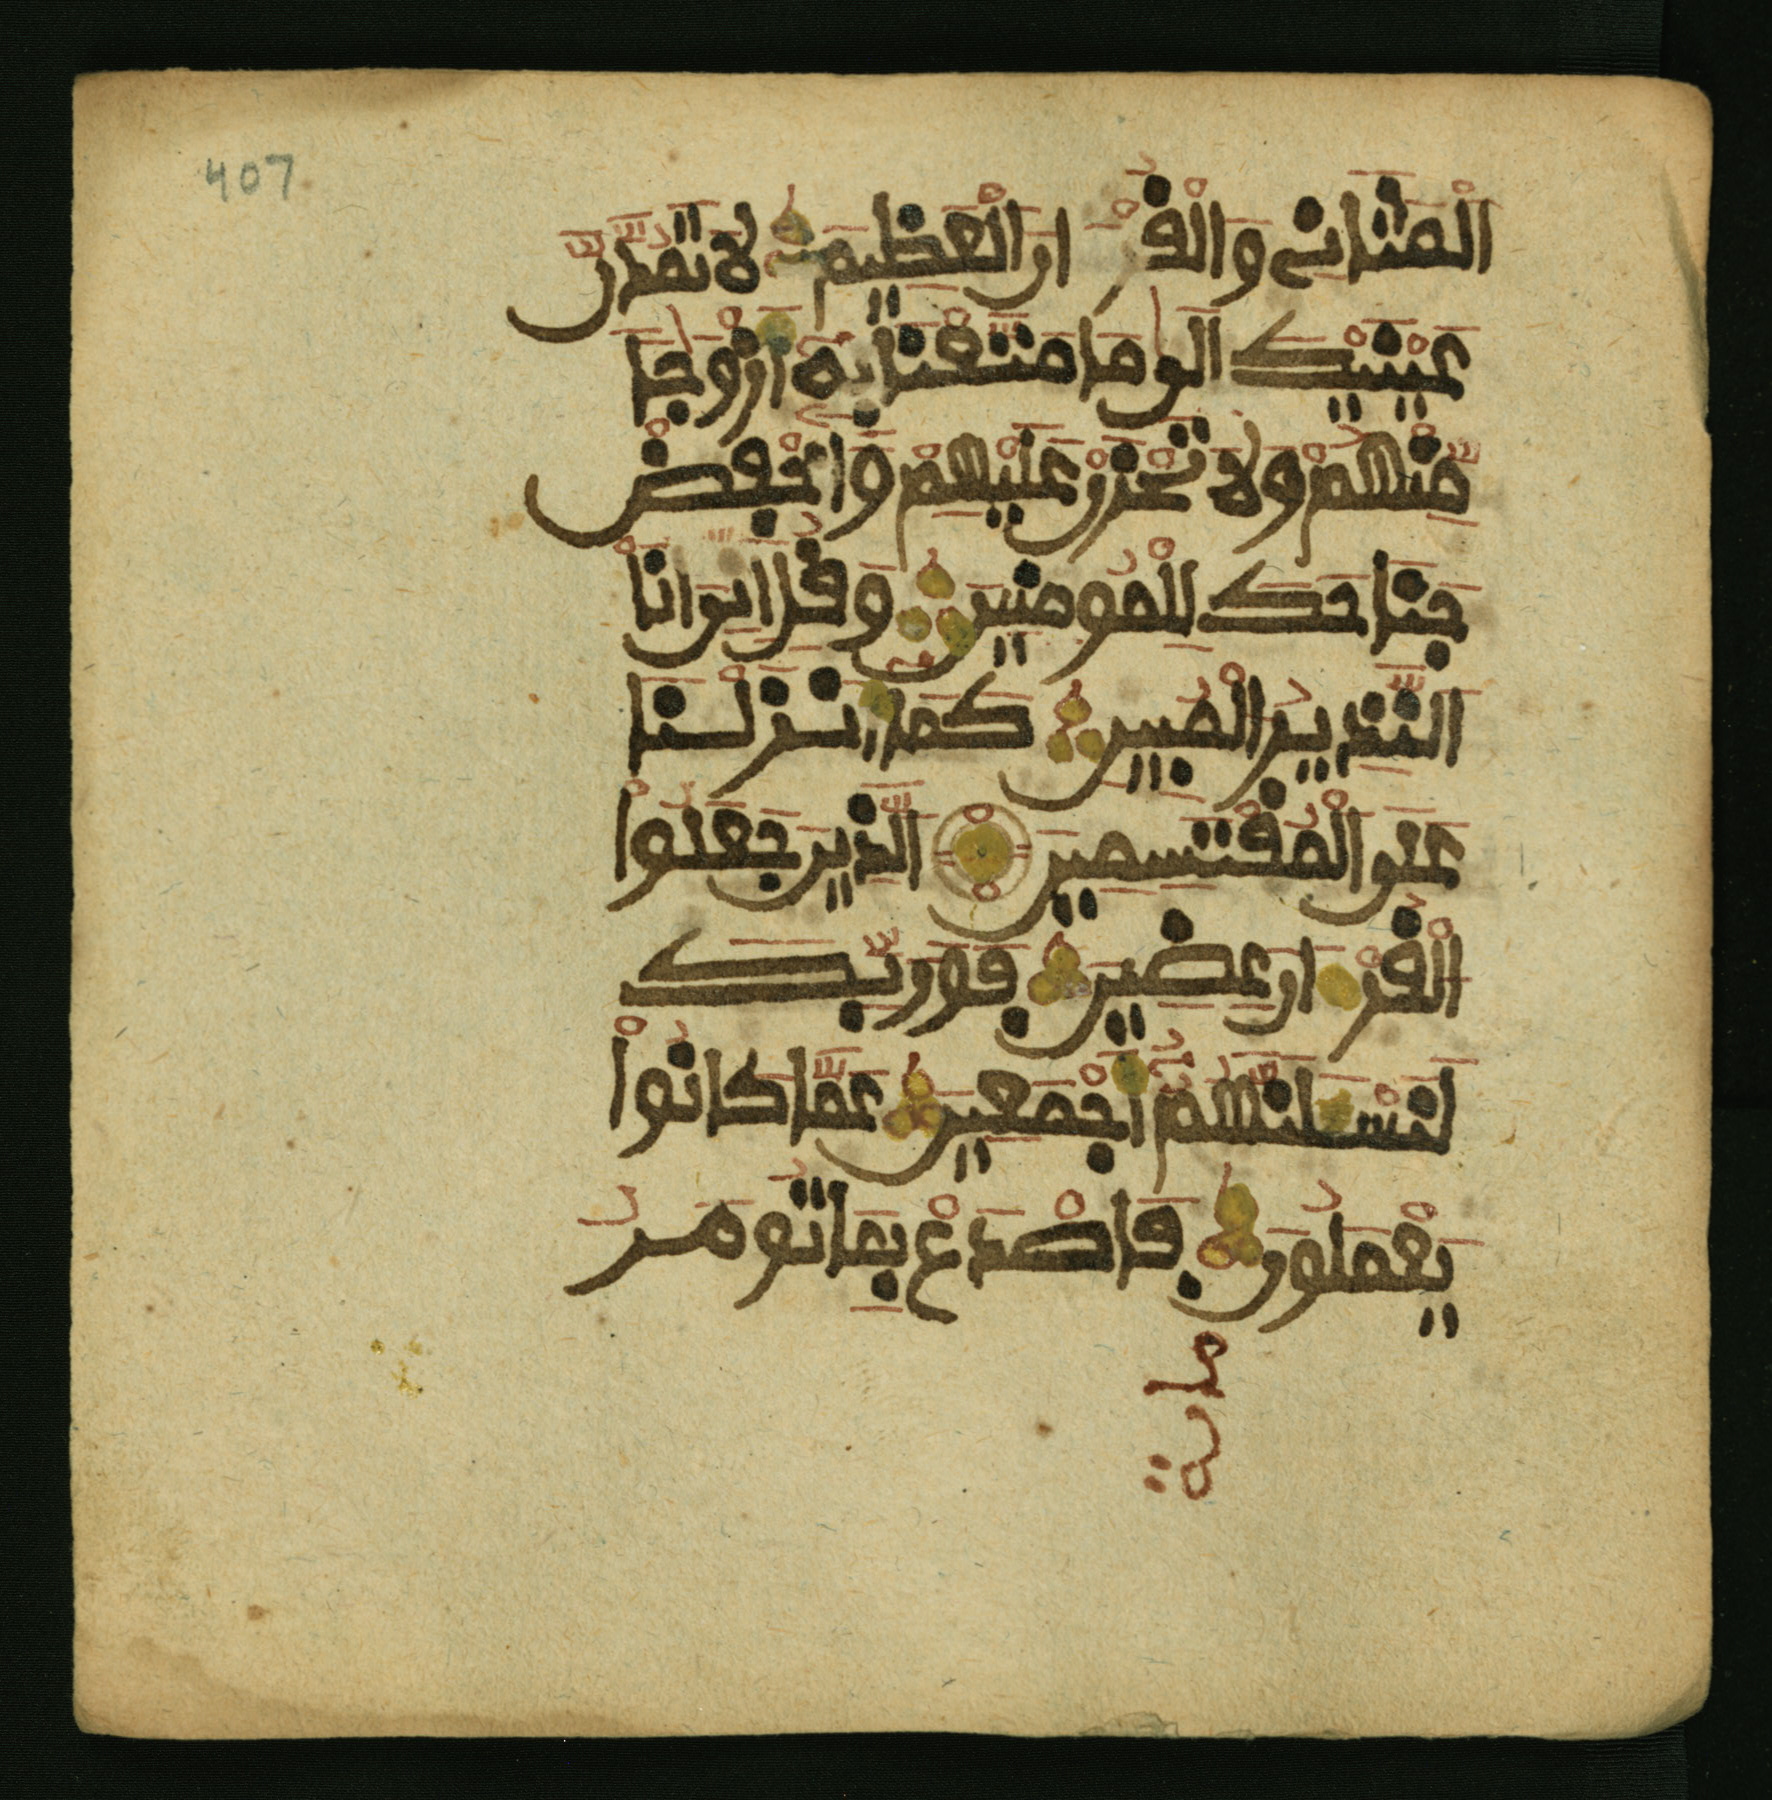 407
الْمَثَانِي وَالْقُرْءَانَ الْعَظِيمَ لَا تَمُدَّنَّ
عَيْنَيْكَ إِلَىٰ مَا مَتَّعْنَا بِهِ أَزْوَٰجًا
مِّنْهُمْ وَلَا تَحْزَنْ عَلَيْهِمْ وَاخْفِضْ
جَنَاحَكَ لِلْمُومِنِينَ وَقُلِ انِّيَ أَنَا
النَّذِيرُ الْمُبِينُ كَمَا أَنزَلْنَا
عَلَى الْمُقْتَسِمِينَ الَّذِينَ جَعَلُواْ
الْقُرْءَانَ عِضِينَ فَوَرَبِّكَ
لَنَسْـَٔلَنَّهُمُ أَجْمَعِينَ عَمَّا كَانُواْ
يَعْمَلُونَ فَاصْدَعْ بِمَا تُومَرُ